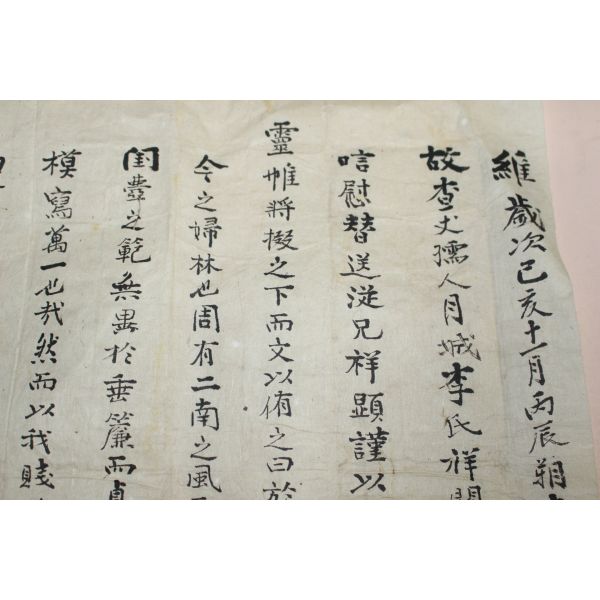 維歲次己亥十一月丙辰朔
故査丈孺人月城李氏祥
唁慰替送從兄祥顯謹以
靈帷將掇之下而文以侑之曰於
今之婦林也周有二南之風
閨壼之範無異於垂簾而
模寫萬一也哉然而以我賤